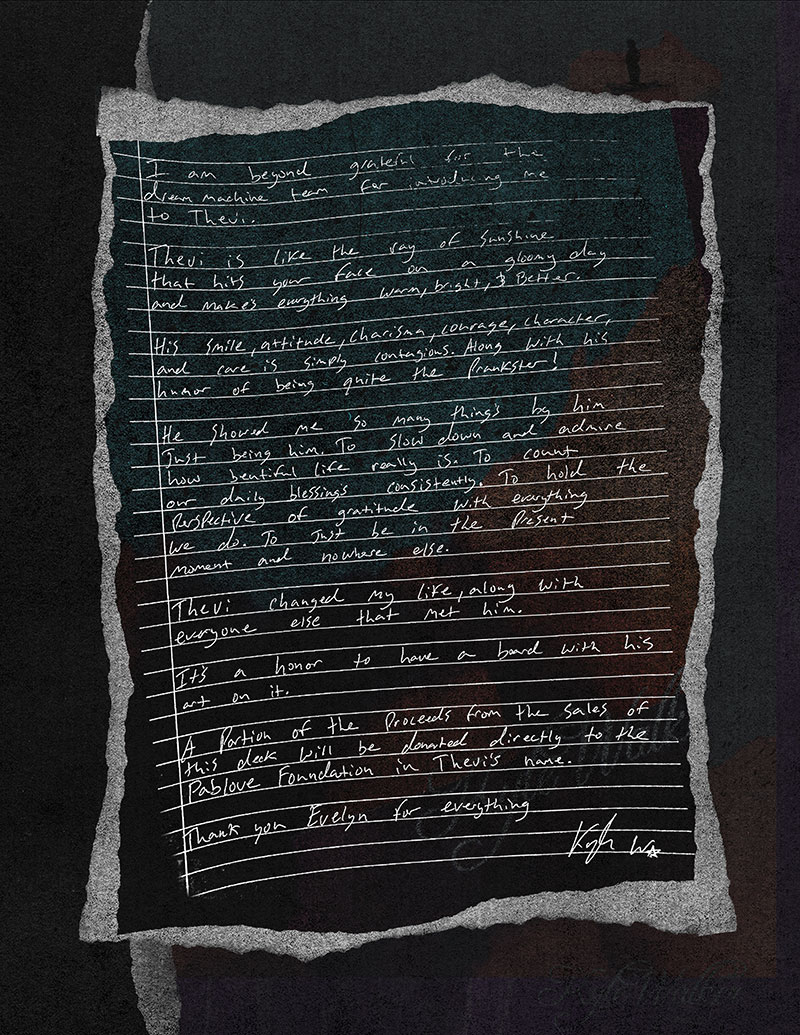 I am beyond grateful for the
dream machine team for introducing me
to Thevi.
Thevi is like the ray of sunshine
that hits your face on a gloomy day
and makes everything warm, bright, & Better.
His smile, attitude, charisma, courage, character,
and care is simply contagious. Along with his
humor of being quite the Prankster!
He showed me so many things by him
Just being him. To slow down and admire
how beutiful life really is. To count
our daily blessings consistently. To hold the
Perspective of gratitude with everything
we do. To Just be in the Present
moment and nowhere else.
Thevi changed my life, along with
everyone else that met him.
It's a honor to have a board with his
art on it.
A Portion of the Proceeds from the sales of
this deck will be donated directly to the
Pablove Foundation in Thevi's name.
Thank you Evelyn for everything